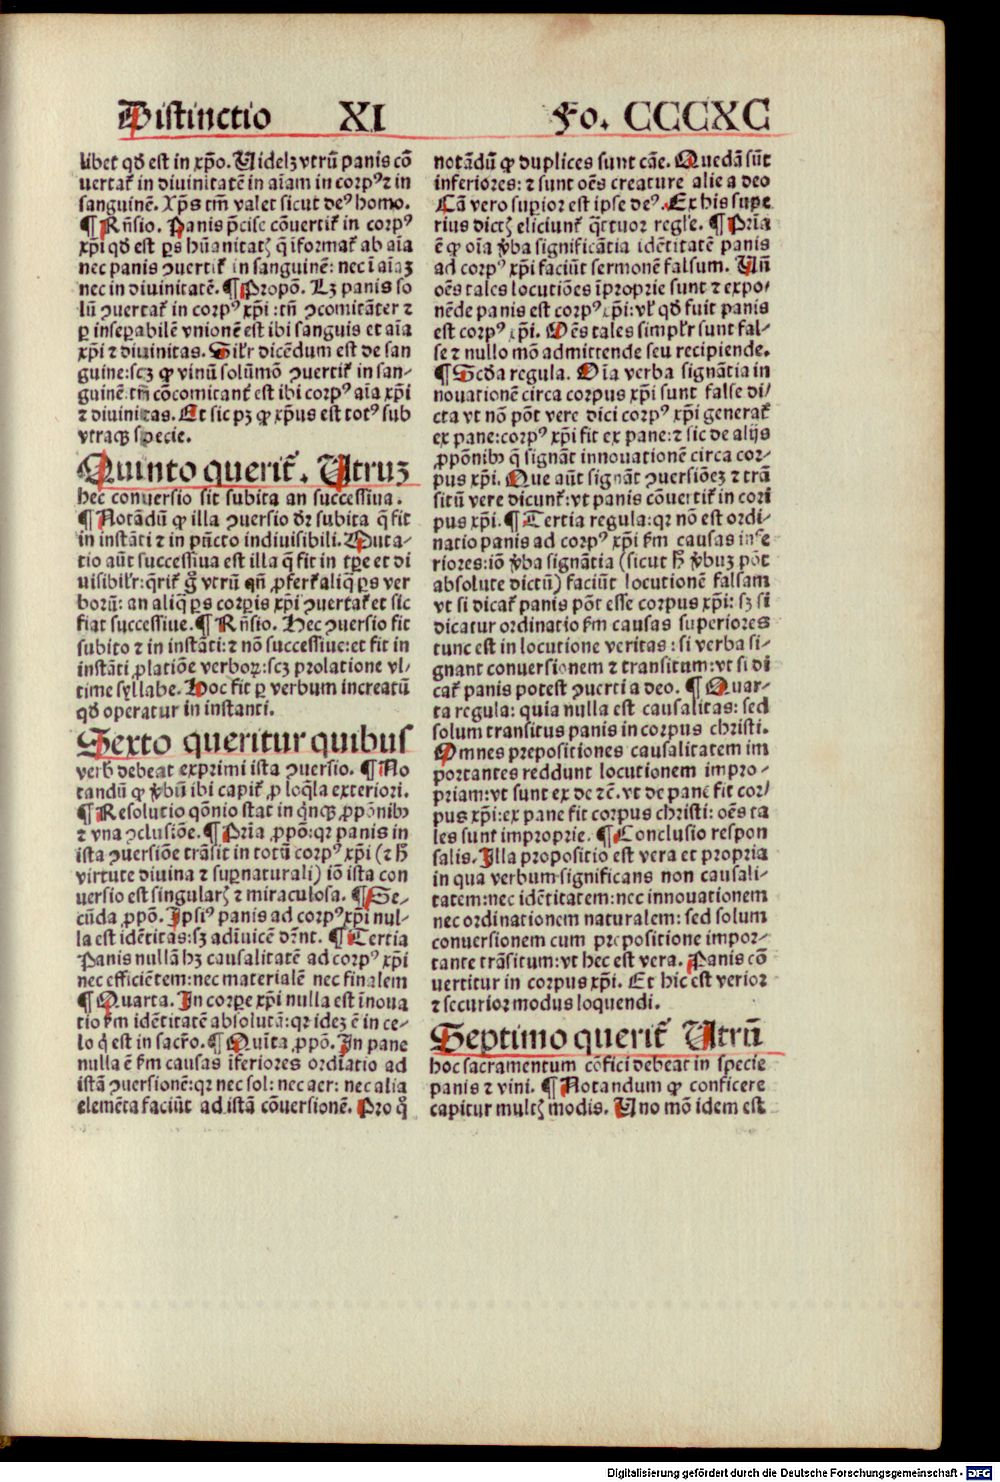 Distinctio XI Fo. CCCXC
libet qď est in xp̄o. Uidelꝫ vtrū panis cō
uertat᷑ in diuinitatē in aīam in corpꝰ ⁊ in
sanguinē. Xp̄s tm̄ valet sicut deꝰ homo.
¶ Rn̄sio. Panis p̄cise cōuertit᷑ in corpꝰ
xp̄i qď est ꝑs hūanitatꝭ q̄ īformat᷑ ab aīa
nec panis ꝯuertit᷑ in sanguinē: nec ī aīaꝫ
nec in diuinitatē. ¶ Propō. Lꝫ panis so
lū ꝯuertat᷑ in corpꝰ xp̄i : tn̄ ꝯcomitāter ⁊
ꝑ inseꝑabilē vnionē est ibi sanguis et aīa
xp̄i ⁊ diuinitas. Silr̄ dicēdum est de san
guine: scꝫ ꝙ vinū solūmō ꝯuertit᷑ in san-
guinē. tm̄ cōcomitant᷑ est ibi corpꝰ aīa xp̄i
⁊ diuinitas. Et sic pꝫ ꝙ xp̄us est totꝰ sub
vtraqꝫ specie.
Quinto querit᷑. Utruꝫ
hec conuersio sit subita an successiua.
¶ Notādū ꝙ illa ꝯuersio dr̄ subita q̄ fit
in instāti ⁊ in pūcto indiuisibili. Muta-
tio aūt successiua est illa q̄ fit in tꝑe et di
uisibilr̄: q̄rit᷑ gͦ vtrū qn̄ ꝓfert᷑ aliq̄ ꝑs ver
borū: an aliq̄ ꝑs corꝑis xp̄i ꝯuertat᷑ et sic
fiat successiue. ¶ Rn̄sio. Hec ꝯuersio fit
subito ⁊ in instāti: ⁊ nō successiue: et fit in
instāti ꝓlatiōe verboꝝ: scꝫ prolatione vl-
time syllabe. Hoc fit ꝑ verbum increatū
qď operatur in instanti.
Sexto queritur quibus
verb̄ debeat exprimi ista ꝯuersio. ¶ No
tandū ꝙ v̄bū ibi capit᷑ ꝓ loq̄la exteriori.
¶ Resolutio qōnio stat in qͥnqꝫ ꝓpōnibꝰ
⁊ vna ꝯclusiōe. ¶ Prīa ꝓpō: qꝛ panis in
ista ꝯuersiōe trāsit in totū corpꝰ xp̄i (⁊ h̄
virtute diuina ⁊ suꝑnaturali) iō ista con
uersio est singularꝭ ⁊ miraculosa. ¶ Se-
cūda ꝓpō. Ipsiꝰ panis ad corpꝰ xp̄i nul-
la est idētitas: sꝫ adīuicē dr̄nt. ¶ Tertia
Panis nullā hꝫ causalitatē ad corpꝰ xp̄i
nec efficiētem: nec materialē nec finalem
¶ Quarta. In corꝑe xp̄i nulla est īnoua
tio ẜm idētitatē absolutā: qꝛ ideꝫ ē in ce-
lo qͥ est in sacr̄o. ¶ Quīta ꝓpō. In pane
nulla ē ẜm causas īferiores ordīatio ad
istā ꝯuersionē: qꝛ nec sol: nec aer: nec alia
elemēta faciūt ad istā cōuersionē. Pro qͦ
notādū ꝙ duplices sunt cāe. Quedā sūt
inferiores: ⁊ sunt oēs creature alie a deo
Cā vero suꝑior est ipse deꝰ. Ex his supe
rius dictꝭ eliciunt᷑ q̄ttuor regl̄e. ¶ Prīa
ē ꝙ oīa v̄ba significātia idētitatē panis
ad corpꝰ xp̄i faciūt sermonē falsum. Un̄
oēs tales locutiōes īproprie sunt ⁊ expo-
nēde panis est corpꝰ xp̄i: vl̄ qď fuit panis
est corpꝰ xp̄i. Oēs tales simplr̄ sunt fal-
se ⁊ nullo mō admittende seu recipiende.
¶ Scďa regula. Oīa verba signātia in
nouationē circa corpus xp̄i sunt false di-
cta vt nō pōt vere dici corpꝰ xp̄i generat᷑
ex pane: corpꝰ xp̄i fit ex pane: ⁊ sic de alijs
ꝓpōnibꝰ q̄ signāt innouationē circa cor-
pus xp̄i. Que aūt signāt ꝯuersiōeꝫ ⁊ trā
sitū vere dicunt᷑: vt panis cōuertit᷑ in cor
pus xp̄i. ¶ Tertia regula: qꝛ nō est ordi-
natio panis ad corpꝰ xp̄i ẜm causas infe
riores: iō v̄ba signātia (sicut h̄ v̄buꝫ pōt
absolute dictū) faciūt locutionē falsam
vt si dicat᷑ panis pōt esse corpus xp̄i: sꝫ si
dicatur ordinatio ẜm causas superiores
tunc est in locutione veritas : si verba si-
gnant conuersionem ⁊ transitum: vt si di
cat᷑ panis potest ꝯuerti a deo. ¶ Quar-
ta regula: quia nulla est causalitas: sed
solum transitus panis in corpus christi.
Omnes prepositiones causalitatem im
portantes reddunt locutionem impro-
priam: vt sunt ex de ⁊c̄. vt de pane fit cor-
pus xp̄i: ex pane fit corpus christi: oēs ta
les sunt improprie. ¶ Conclusio respon
salis. Illa propositio est vera et propria
in qua verbum significans non causali-
tatem: nec idētitatem: nec innouationem
nec ordinationem naturalem: sed solum
conuersionem cum prepositione impor-
tante trāsitum: vt hec est vera. Panis cō
uertitur in corpus xp̄i. Et hic est verior
⁊ securior modus loquendi.
Septimo querit᷑ Utrū
hoc sacramentum cōfici debeat in specie
panis ⁊ vini. ¶ Notandum ꝙ conficere
capitur multꝭ modis. Uno mō idem est
Digitalisierung gefördert durch die Deutsche Forschungsgemeinschaft - DFG